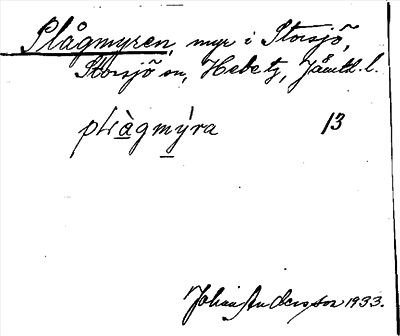 Plågmyren, myr i Storsjö,
Storsjö sn, Hede tg, Jämtl. l.
plàgmýra 13
Johan Andersson 1933.